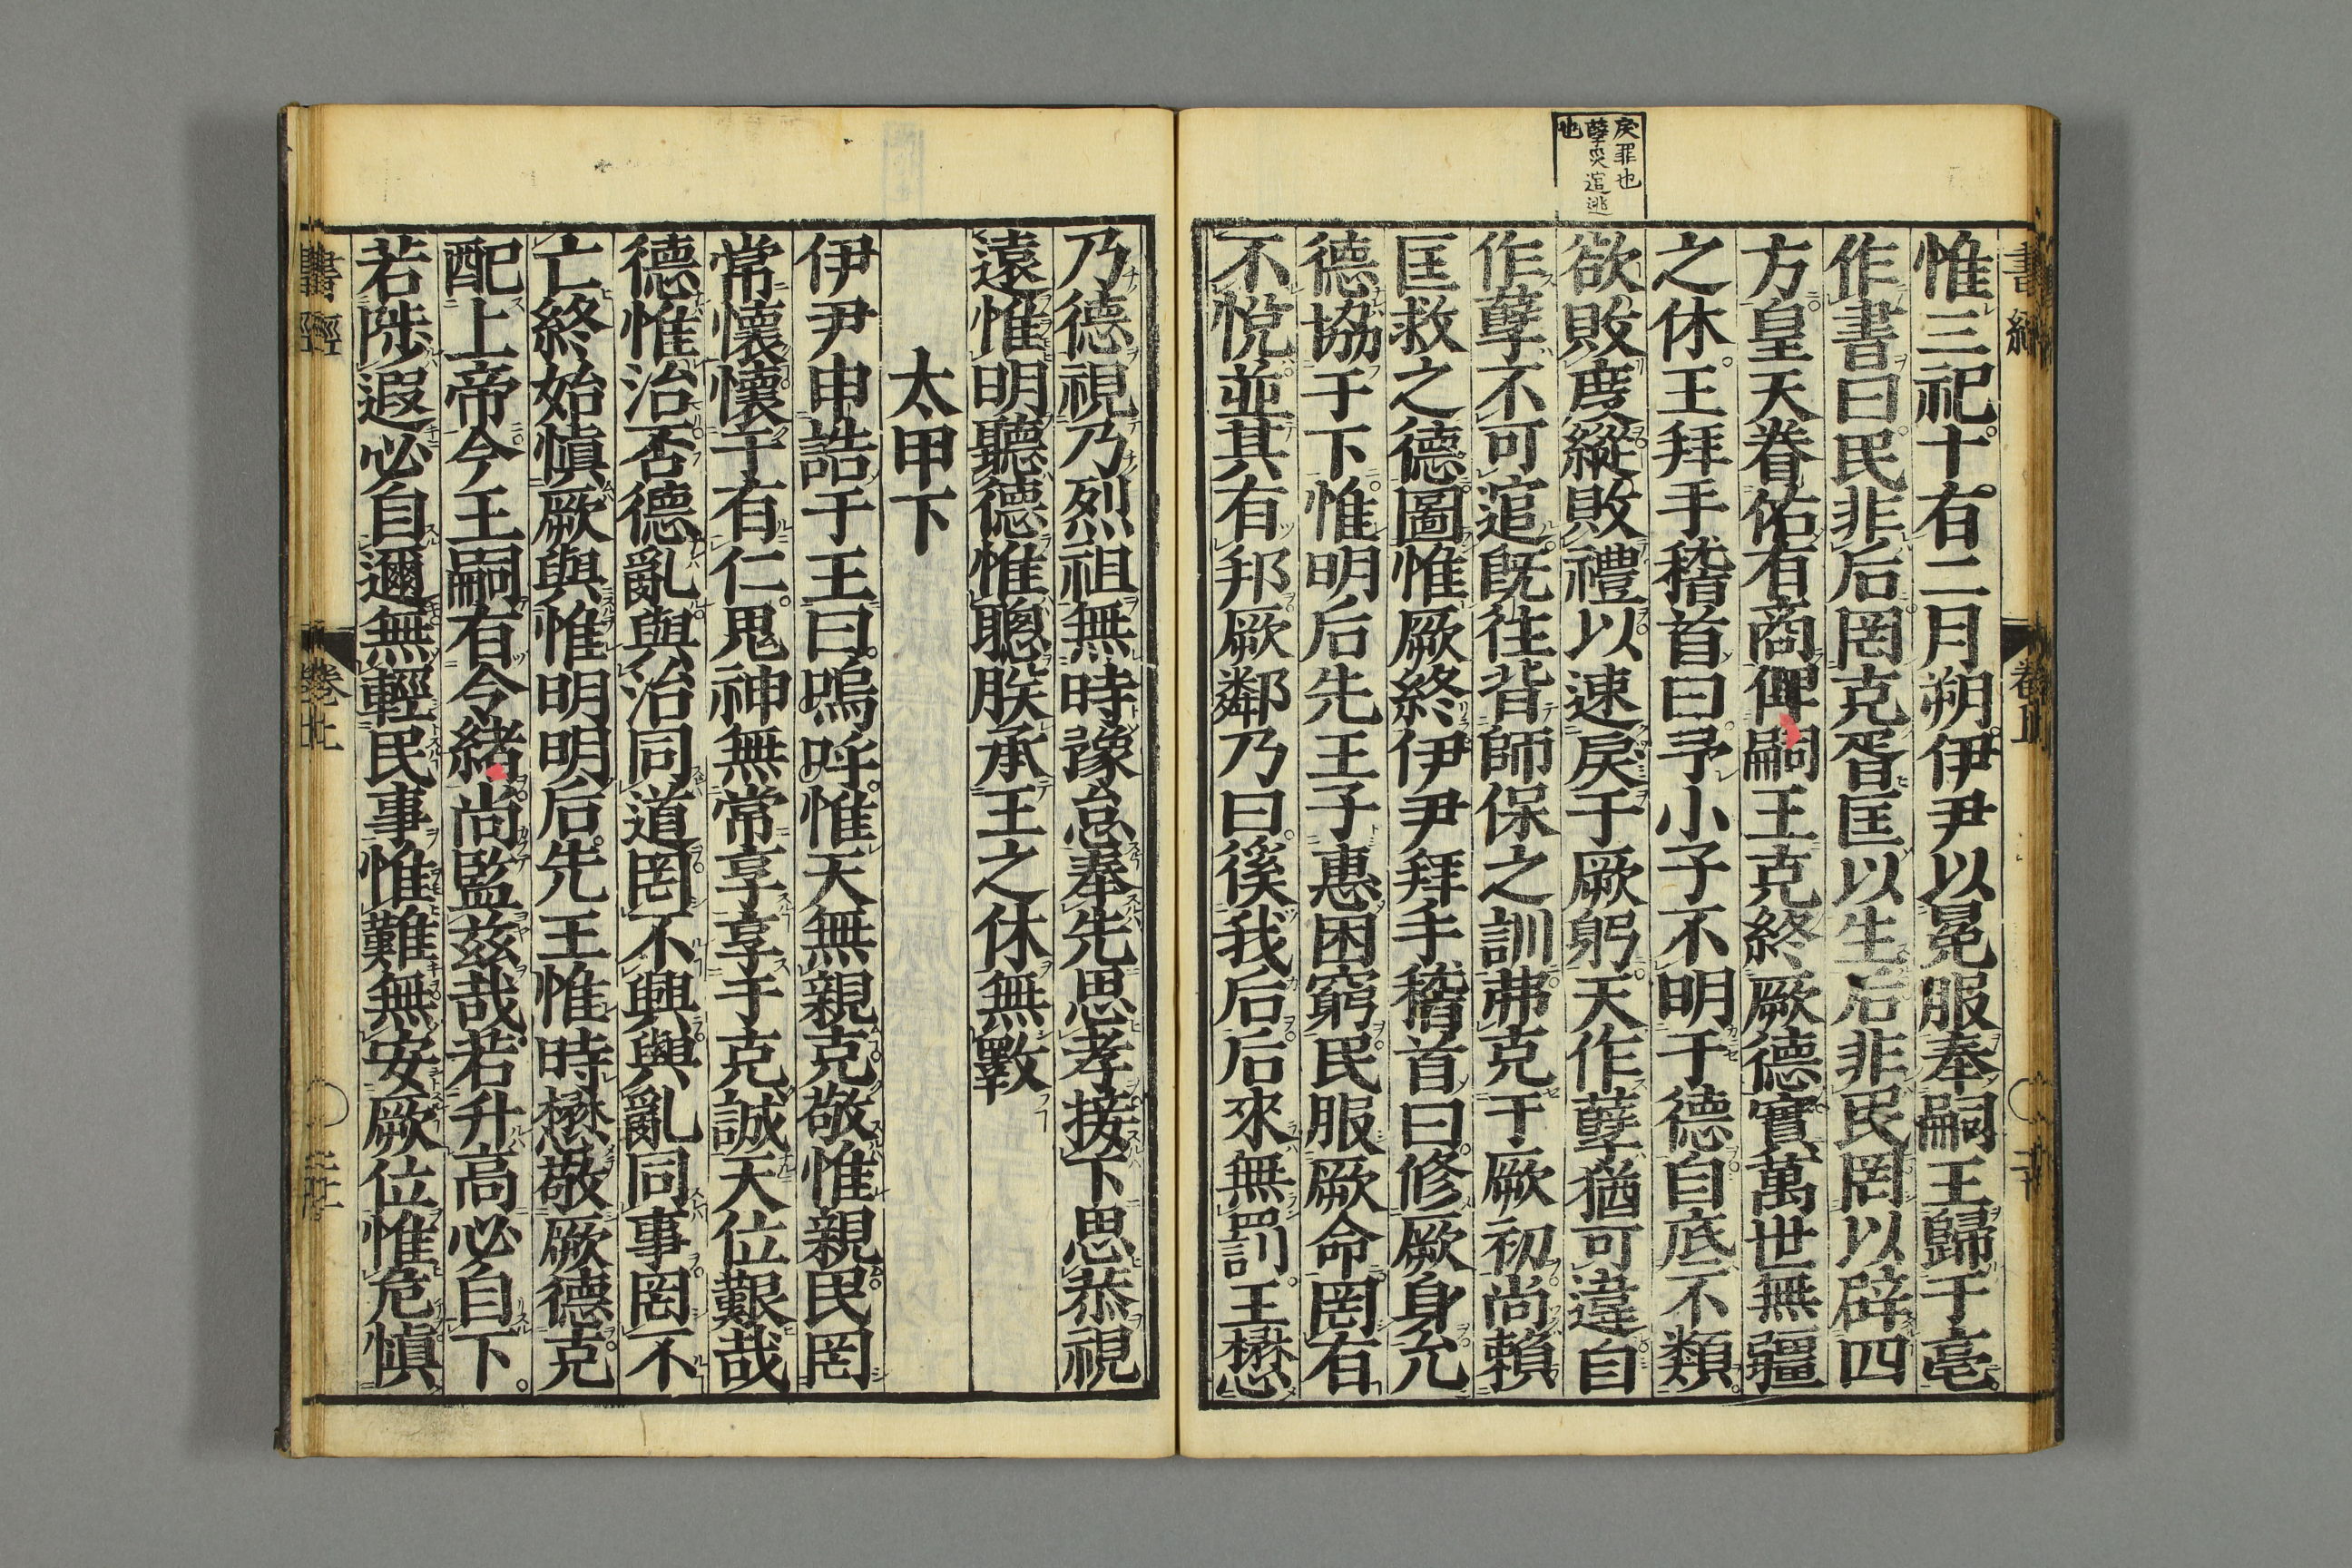 戾罪也
孽災逭逃
也
惟三祀十有二月朔伊尹以冕服奉嗣王歸于亳
作書曰民非后罔克胥匡以生后非民罔以辟四
方皇天眷佑有商俾嗣王克終厥德實萬世無疆
之休王拜手稽首曰予小子不明于德自底不類
欲敗度縱敗禮以速戾于厥躬天作孽猶可違自
作孽不可逭既往背師保之訓弗克于厥初尚賴
匡救之德圖惟厥終伊尹拜手稽首曰修厥身允
德協于下惟明后先王子惠困窮民服厥命罔有
不悅並其有邦厥鄰乃曰徯我后后來無罰王懋
乃德視乃烈祖無時豫怠奉先思孝接下思恭視
遠惟明聽德惟聰朕承王之休無斁
太甲下
伊尹申誥于王曰嗚呼惟天無親克敬惟親民罔
常懷懷于有仁鬼神無常享享于克誠天位艱哉
德惟治否德亂與治同道罔不興與亂同事罔不
亡終始慎厥與惟明明后先王惟時懋敬厥德克
配上帝今王嗣有令緒尚監茲哉若升高必自下
若陟遐必自邇無輕民事惟難無安厥位惟危慎
書經